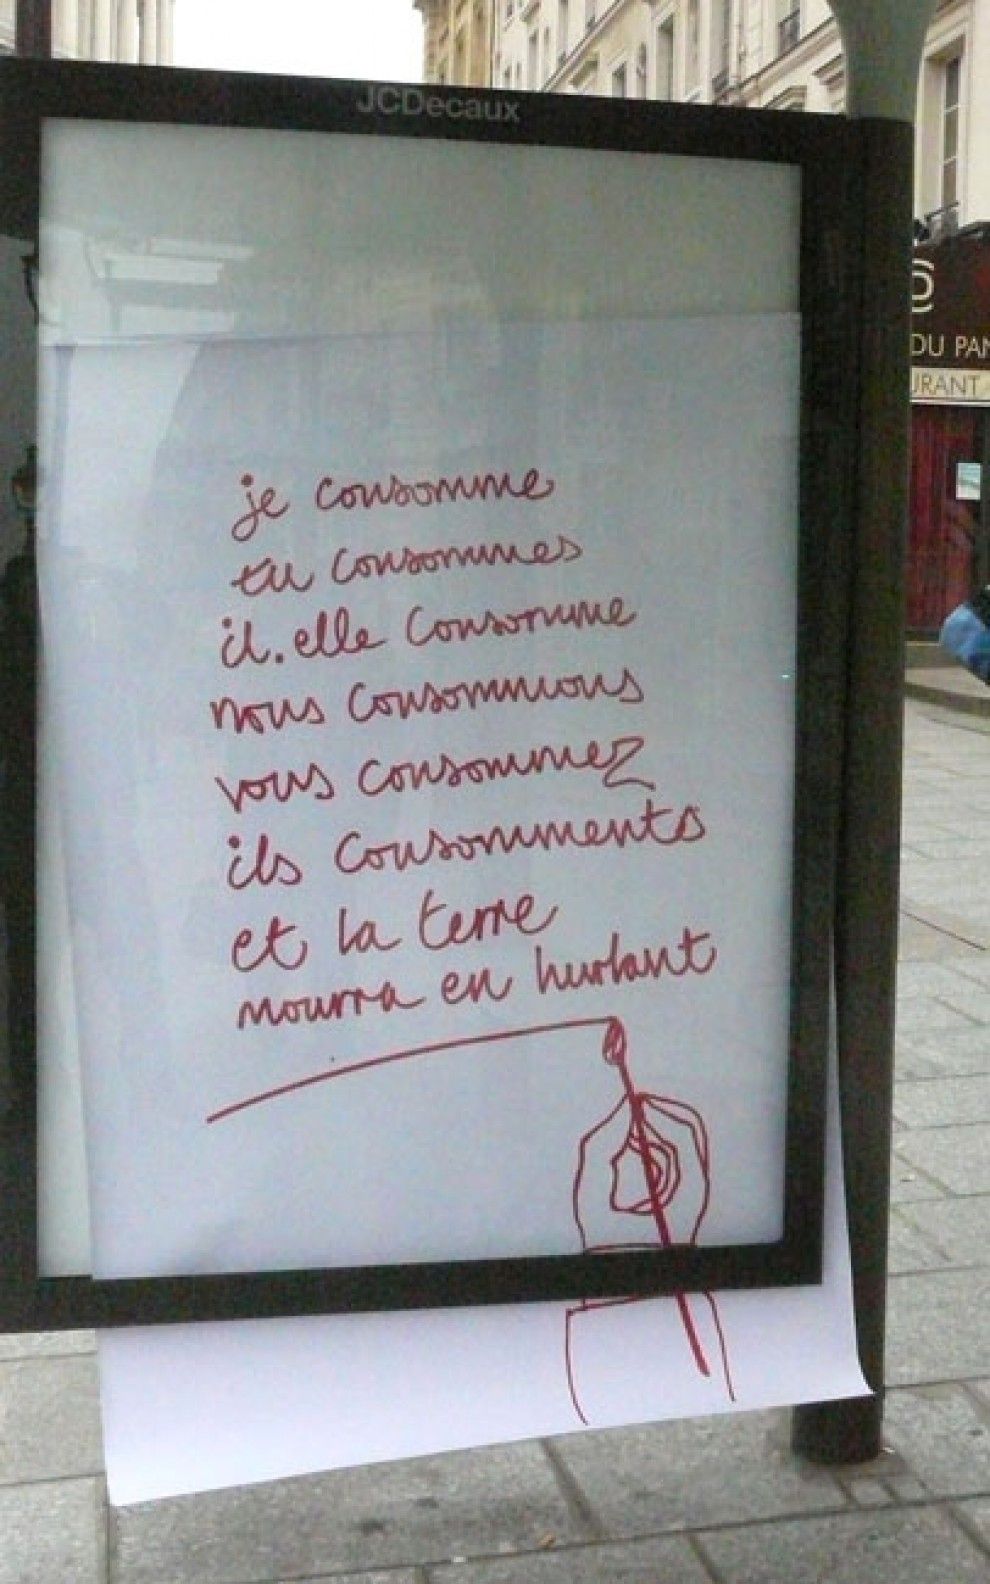 JCDecaux
je consomme
tu consommes
il.elle consomme
nous consommons
vous consommez
ils consomments
et la terre
mourra en hurlant
DU PAN
URANT